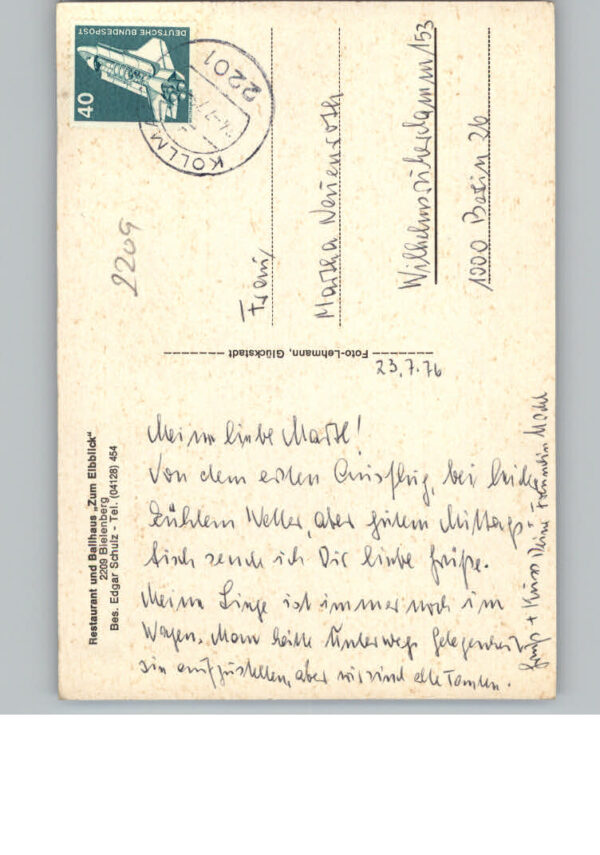 Restaurant und Ballhaus „Zum Elbblick"
2209 Bielenberg
Bes. Edgar Schulz - Tel. (04128) 454
23.7.76
Meine liebe Martl!
Von dem ersten Ausflug, bei leider
kühlem Wetter, aber gutem Mittags-
tisch sende ich Dir liebe Grüße.
Meine Liege ist immer noch im
Wagen. Man hätte unterwegs Gelegenheit
sie aufzustellen, aber wir sind alle Tanten.
Gruß + Kuss Deine Freundin
Foto-Lehmann, Glückstadt
DEUTSCHE BUNDESPOST
40
2201
KOLLM
2209
Frau
Martha Neuenroth
Wilhelmsruherdamm 153
1000 Berlin 26